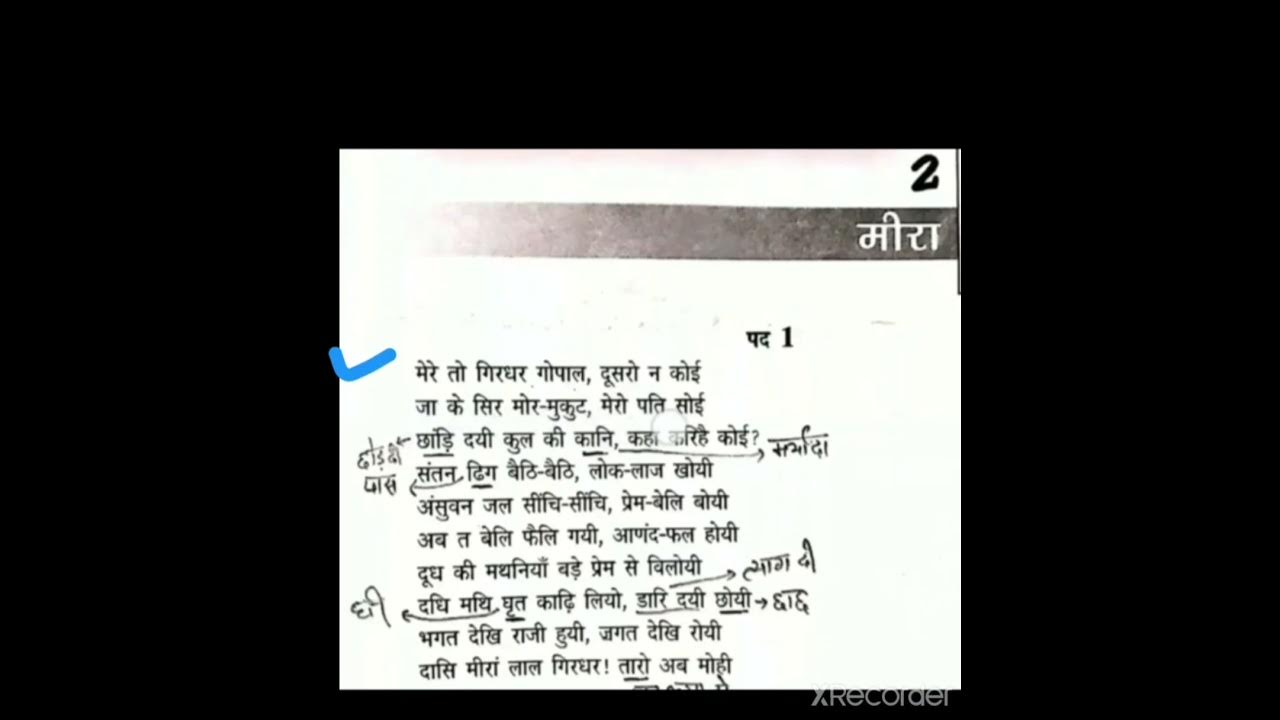 2
मीरा
पद 1
मेरे तो गिरधर गोपाल, दूसरो न कोई
जा के सिर मोर-मुकुट, मेरो पति सोई
छांड़ि दयी कुल की कानि, कहा करिहै कोई? मर्यादा
छोड़ दी
संतन ढिग बैठि-बैठि, लोक-लाज खोयी
पास
अंसुवन जल सींचि-सींचि, प्रेम-बेलि बोयी
अब त बेलि फैलि गयी, आणंद-फल होयी
दूध की मथनियाँ बड़े प्रेम से विलोयी त्याग दी
घी दधि मथि घृत काढ़ि लियो, डारि दयी छोयी → छाछ
भगत देखि राजी हुयी, जगत देखि रोयी
दासि मीरां लाल गिरधर! तारो अब मोही
XRecorder